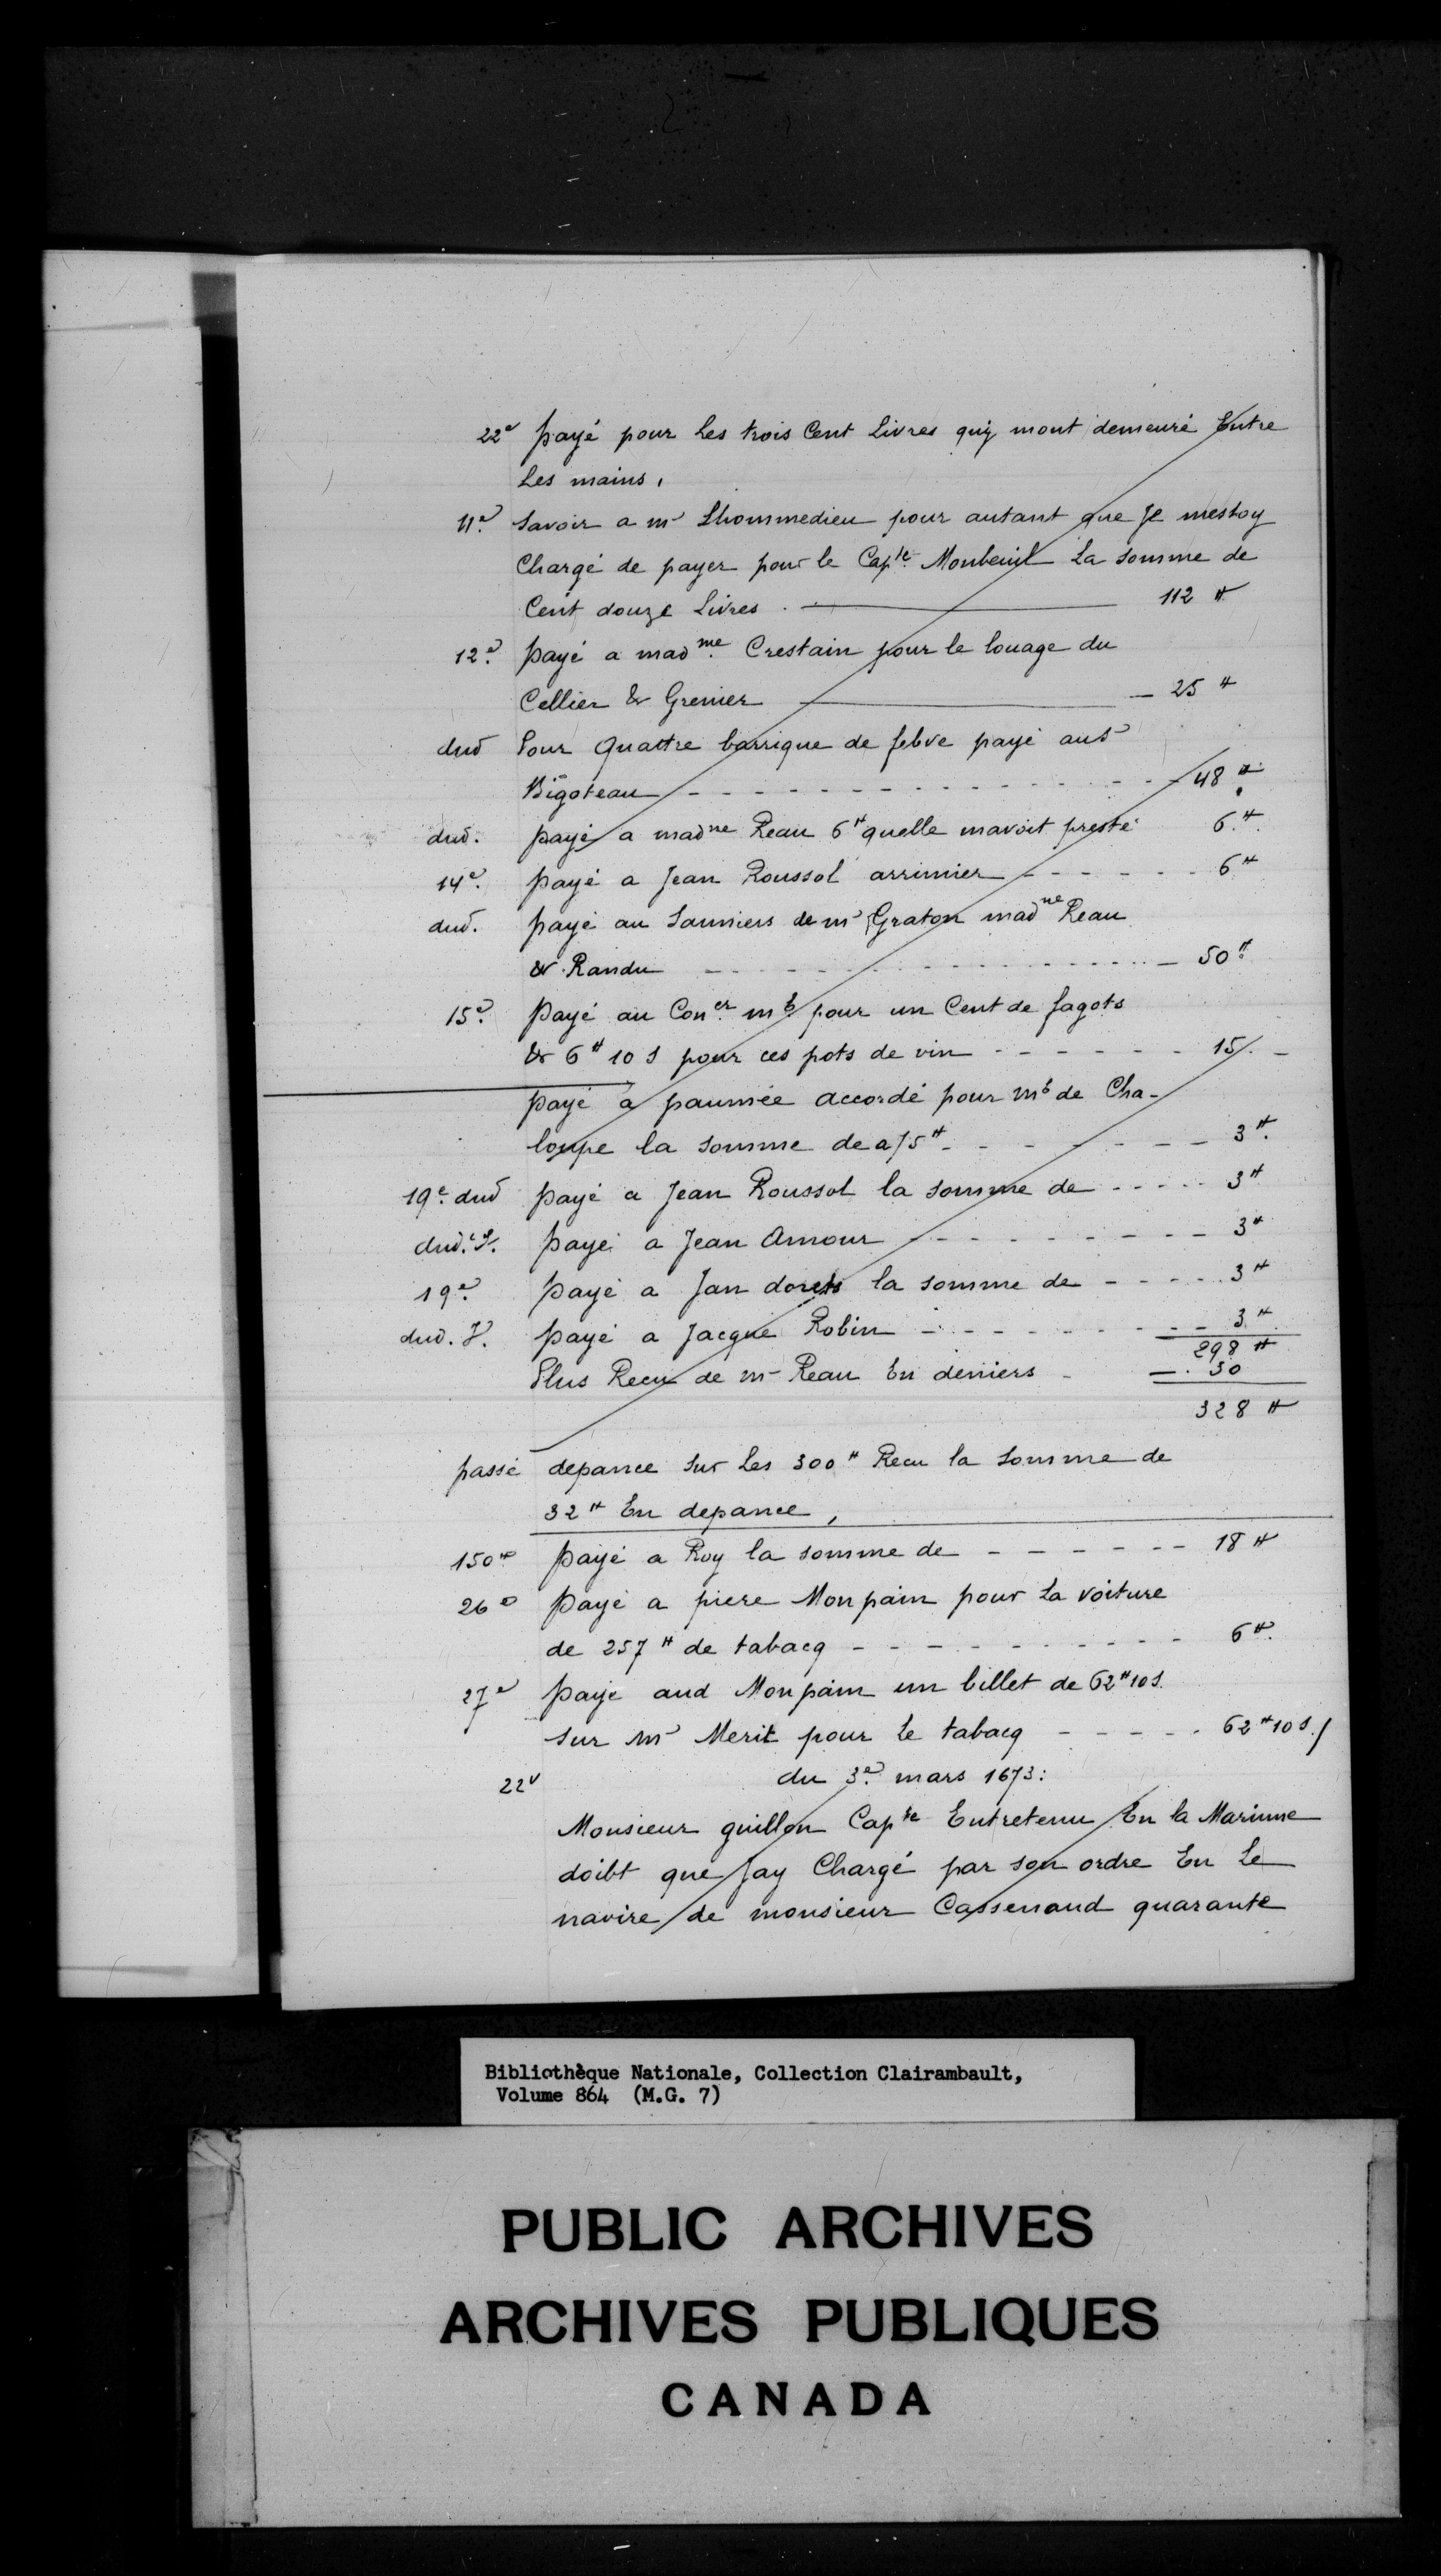 22e payé pour Les trois Cent Livres quy mont demeuré Entre
Les mains,
11e Savoir a mr Lhommedieu pour autant que Je mestoy
Chargé de payer pour le Capne Monbeuil La somme de
Cent douze Livres . 112 ₶
12e payé a madme Crestain pour le louage du
Cellier & Grenier 25 ₶
dud Pour Quattre barrique de febve payé aus
Bigoteau 48 ₶
dud. payé a madne Reau 6₶ quelle mavoit presté 6 ₶
14e payé a Jean Roussol arrimier 6 ₶
dud. payé au Sauniers de mr Graton madne Reau
& Randu 50 ₶
15e Payé au Coner mb pour un Cent de fagots
& 6 ₶ 10 s pour ces pots de vin 15
payé a paumée accordé pour mb de Cha-
loupe la somme de a 75 ₶ 3 ₶
19e dud payé a Jean Roussol la somme de 3 ₶
dud. payé a Jean Amour 3 ₶
19e payé a Jan dorets la somme de 3 ₶
dud. J. payé a Jacque Robin 3 ₶
298 ₶
Plus Recu de mr Reau En deniers 30
328 ₶
passé depance sur Les 300 ₶ Recu la Somme de
32 ₶ En depance,
150 ₶ payé a Roy la somme de 18 ₶
26e Payé a piere Monpain pour La voiture
de 257 ₶ de tabacq 6 ₶
27e Payé aud Monpain un billet de 62 ₶ 10 s.
sur Mr Merit pour Le tabacq 62 ₶ 10 s.
22v du 3e mars 1673:
Monsieur guillon Capne Entretenu En la Marinne
doibt que Jay Chargé par son ordre En Le
navire de monsieur Cassenaud quarante
Bibliothèque Nationale, Collection Clairambault,
Volume 864 (M.G. 7)
PUBLIC ARCHIVES
ARCHIVES PUBLIQUES
CANADA